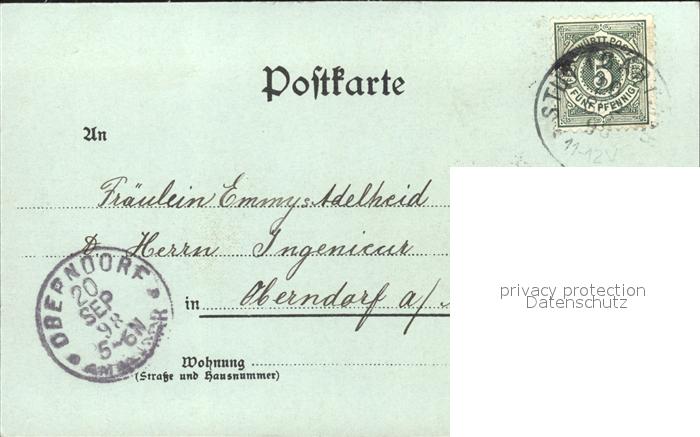 Postkarte
WÜRTT. POST
5
FÜNF PFENNIG
11-12V
An
Fräulein Emmy Adelheid
Herrn Ingenieur
in Oberndorf a/
privacy protection
Datenschutz
OBERNDORF
20
SEP
98
5-6N
AM NECKAR
Wohnung
(Straße und Hausnummer)